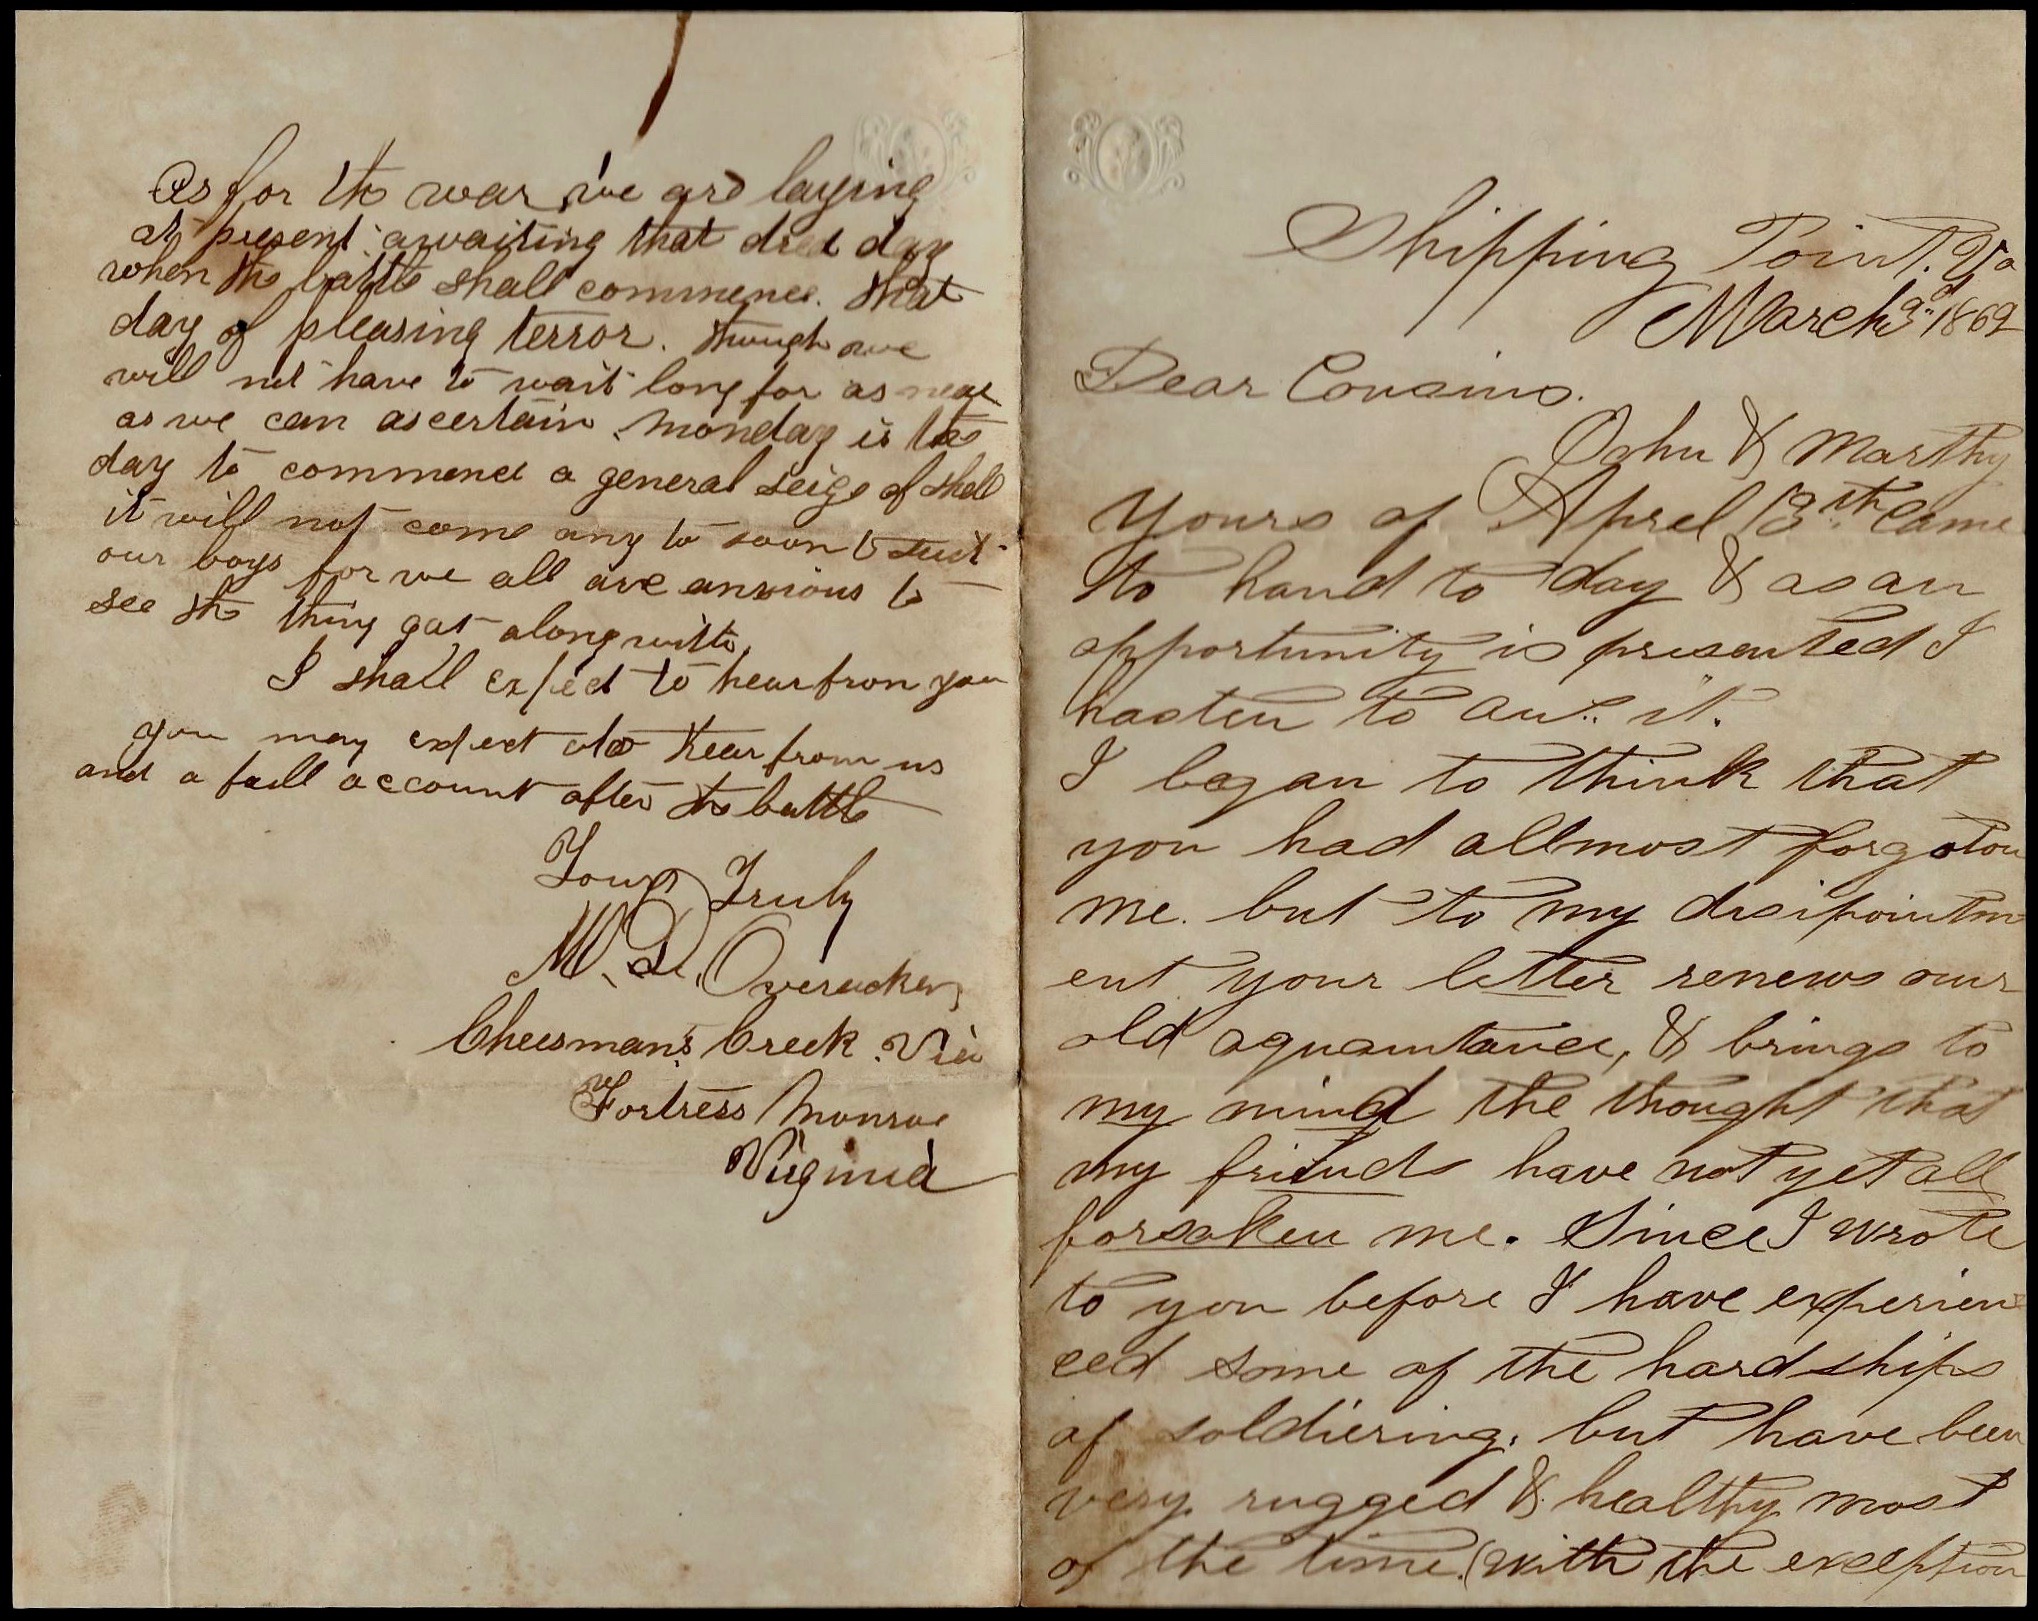 Shipping Point. Va
March 3d 1862
Dear Cousins.
John & Marthy
Yours of Aprel 13th came
to hand to day & as an
opportunity is presented I
hasten to ans. it.
I began to think that
you had allmost forgoton
me. but to my disipointm
ent your letter renews our
old aquaintance, & brings to
my mind the thought that
my friends have not yet all
forsaken me. Since I wrote
to you before I have experien
ced some of the hardships
of soldiering. but have been
very rugged & healthy most
of the time. (with the exception
As for the war we are laying
at present awaiting that dred day
when the battle shall commence. that
day of pleasing terror. though we
will not have to wait long for as near
as we can ascertain monday is the
day to commence a general seige of shell
it will not come any to soon to suit
our boys for we all are anxious to
see the thing gat along with
I shall expect to hear from you
you may expect to hear from us
and a full account after the battle
Yours Truly
M. D. Overacker
Cheesman's Creek. Via
Fortress Monroe
Virginia